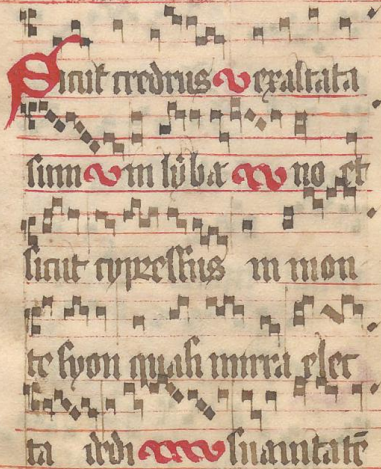 Sicut cedrus exaltata
sum in lyba no et
sicut cypressus in mon
te syon quasi mirra elec
ta dedi suauitatē